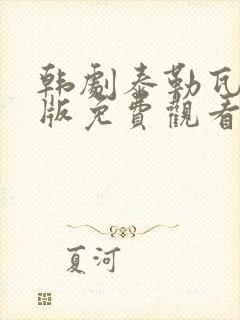 韩劇泰勒瓦
版免費觀看
夏河